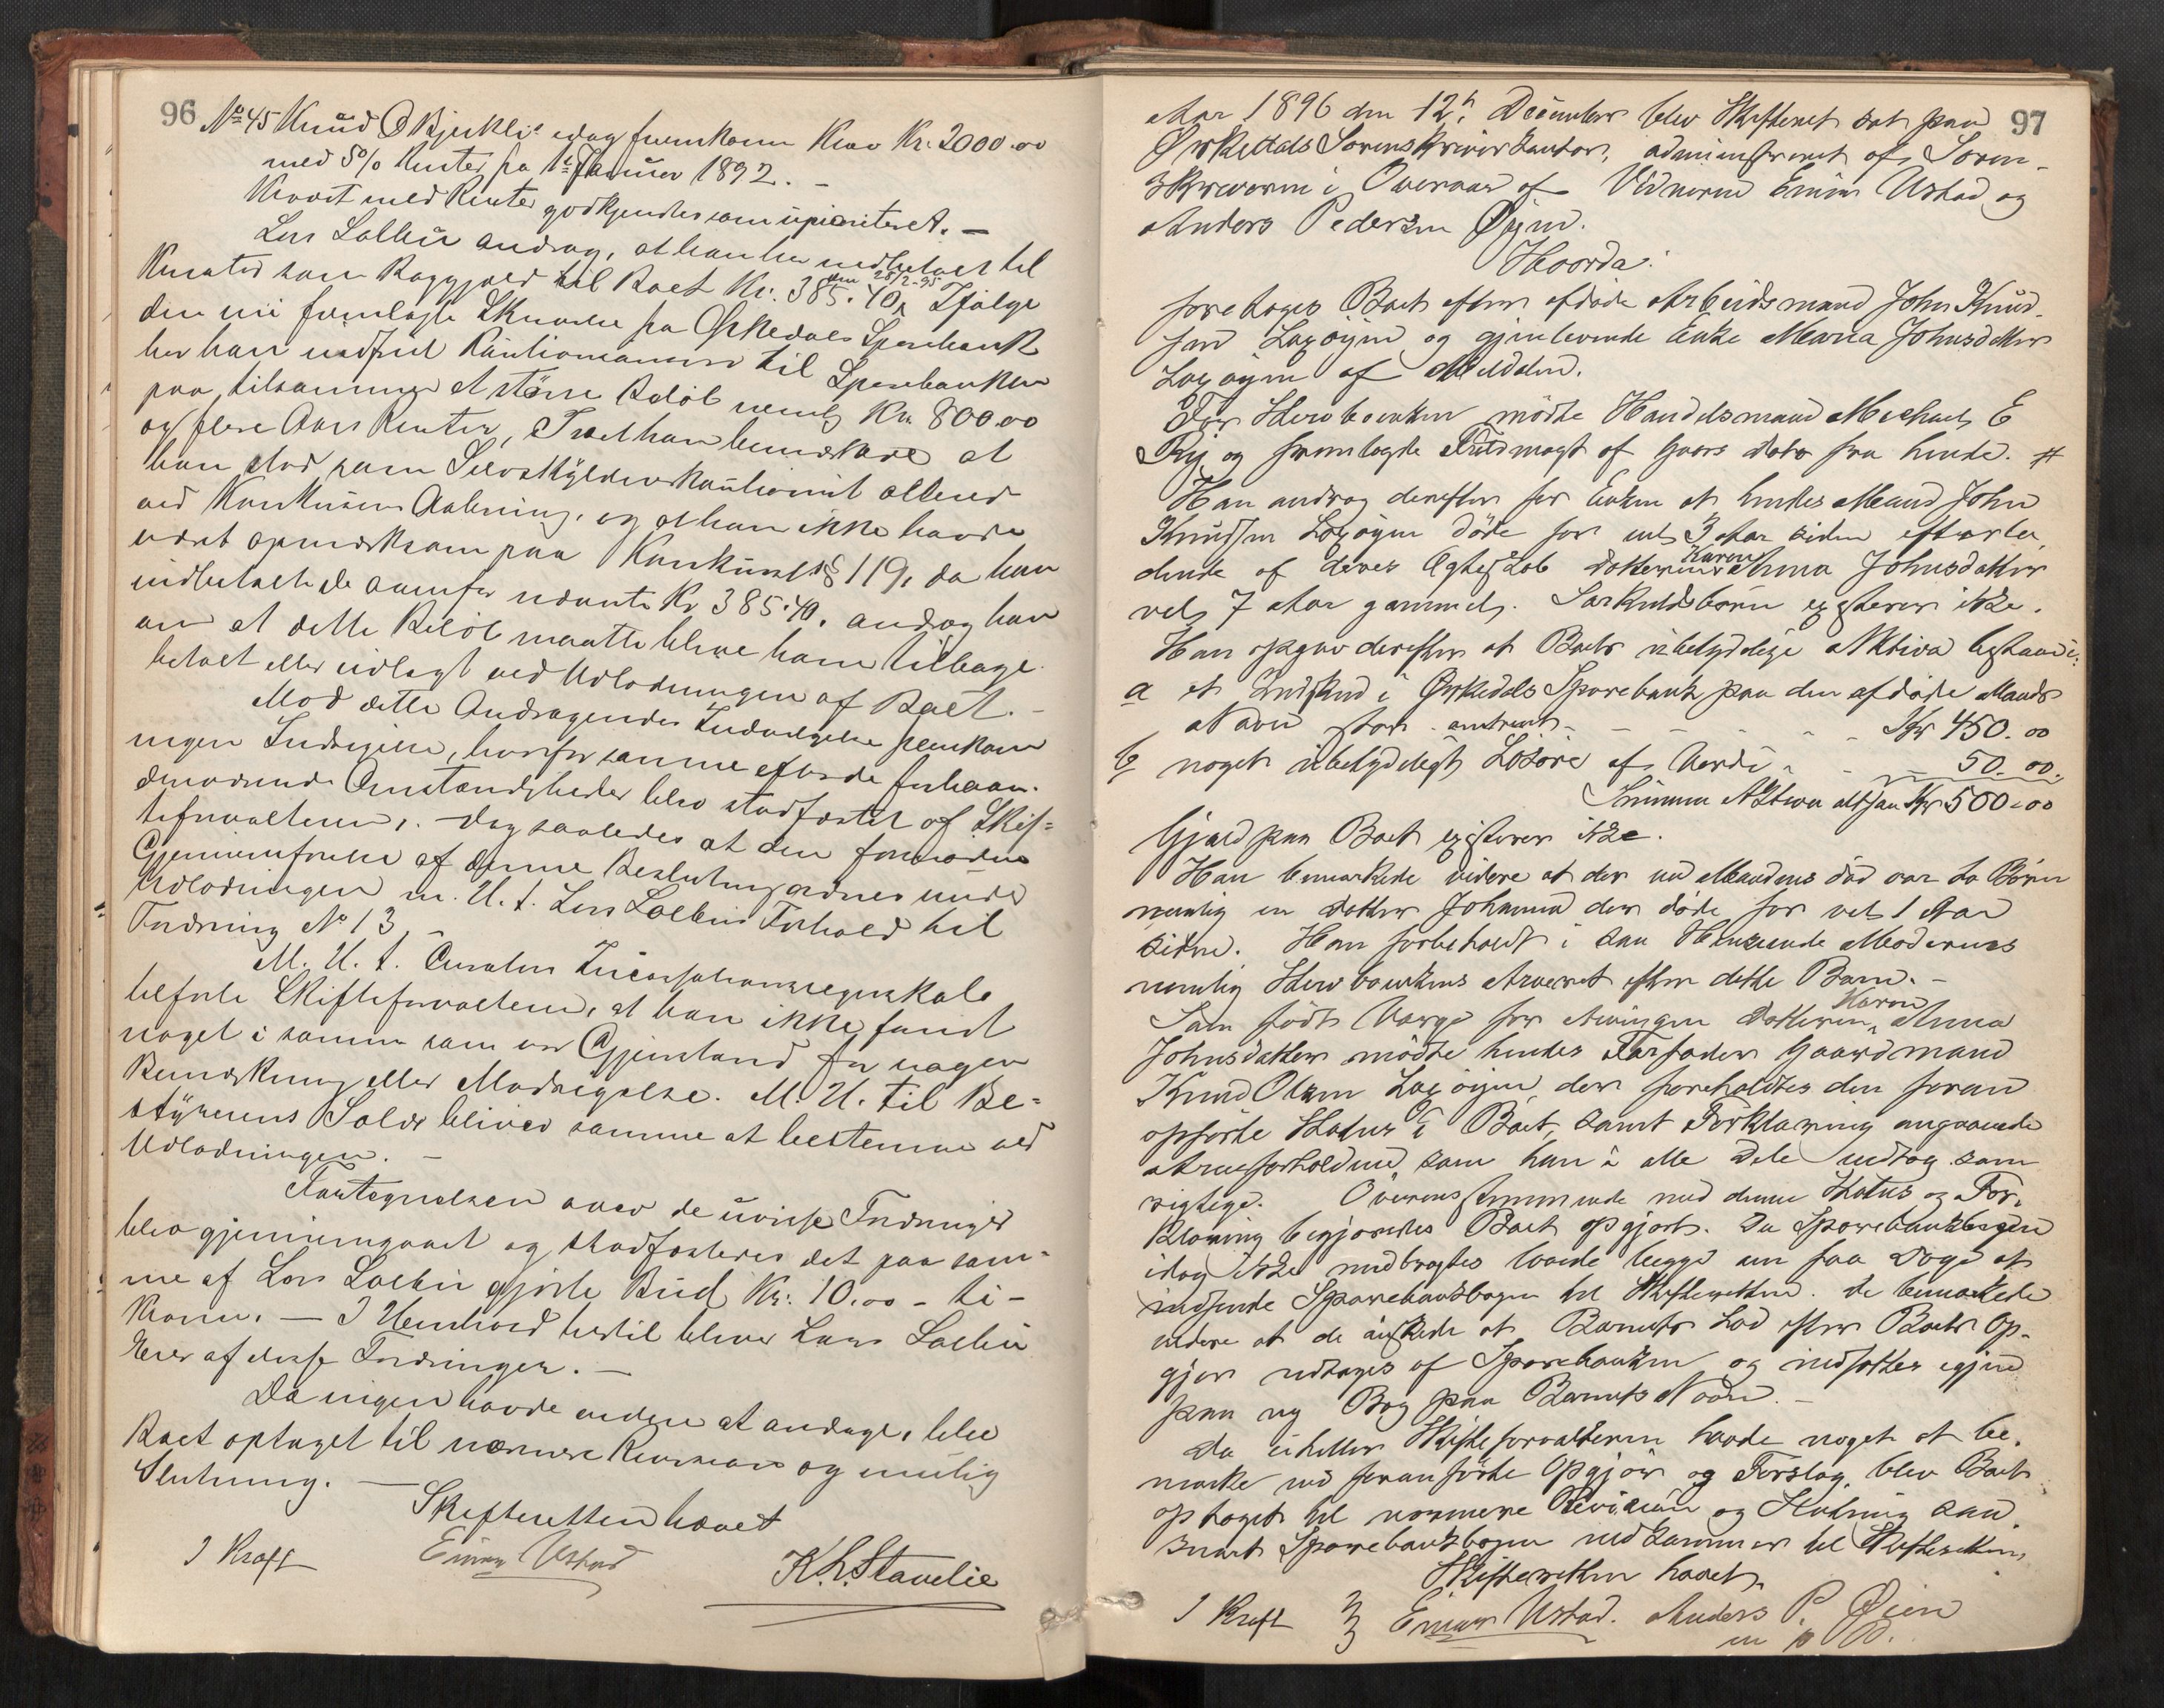 96
No 45 Knud O Bjerkli's idag fremkomne Krav Kr. 2000.00
med 5% Renter fra 1ste Januar 1892. -
Kravet med Renter godkjendes som uprioriteret. -
Lars Solbu androg, at han har indbetalt til
Kurator som Boggjæld til Boet Kr. 385.40, den 28/2-95 Ifølge
den nu fremlagte Skrivelse fra Ørkedals Sparebank
har han indfriet Kautionsansvar til Sparebanken
paa tilsammen et større Beløb nemlig Kr. 800.00
og flere Aars Renter, Idet han bemærkede at
han stod som Selvskyldnerkautionist allerede
ved Konkursens Aabning, og at han ikke havde
været opmærksom paa Konkursl. § 119, da han
indbetalte de ovenfor nævnte Kr 385.40, androg han
om at dette Beløb maatte blive ham tilbage-
betalt eller udlagt ved Udlodningen af Boet. -
Mod dette Andragendes Indvilgelse fremkom
ingen Indsigelse, hvorfor samme efter de forhaan-
denværende Omstændigheder blev stadfæstet af Skif-
teforvalteren, - dog saaledes at den fornødne
Gjennemførelse af denne Beslutning ordnes under
Udlodningen m. H. t. Lars Solbus Forhold til
Fordring No 13. -
M. H. t. Curators
tilførte Skifteforvalteren, at han ikke fandt
noget i samme som var Gjenstand for nogen
Bemærkning eller Modsigelse. M. H. til Be-
styrerens Salær bliver samme at bestemme ved
Udlodningen. -
Fortegnelsen over de uvisse Fordringer
blev gjennemgaaet og stadfæstedes det paa sam-
me af Lars Solbu gjorte Bud Kr: 10.00 - ti -
Kroner. - I Henhold hertil bliver Lars Solbu
Eier af disse Fordringer. -
Da ingen havde videre at andrage, blev
Boet optaget til nærmere Revision og mulig
Slutning. -
Skifteretten hævet
I Kraft Einar Ustad K. L. Stavelie
97
Aar 1896 den 12te December blev Skifteret sat paa
Ørkedals Sorenskriverkontor, administreret af Soren-
skriveren i Overvær af Vidnerne Einar Ustad og
Anders Pedersen Øyen.
Hvorda:
foretoges Boet efter afdøde Arbeidsmand John Knud-
sen Laxøyen og gjenlevende Enke Maria Johnsdatter
Laxøyen af Meldalen.
For Stervboenken mødte Handelsmand Michael E
Ry og fremlagde Fuldmagt af Gaars Dato fra hende. #
Han androg derefter for Enken at hendes Mand John
Knudsen Laxøyen døde for vel 3 Aar siden efterla-
dende af deres Ægteskab Datteren Karen Anna Johnsdatter
vel 7 Aar gammel. Særkuldsbørn existerer ikke.
Han opgav derefter at Boets ubetydelige Aktiva bestaar i:
a et Indskud i Ørkedals Sparebank paa den afdøde Mands
Navn stort omtrent - - - - Kr 450.00
b noget ubetydeligt Løsøre af Værdi - - - 50.00.
Summa Aktiva altsaa Kr 500.00
Gjæld paa Boet existerer ikke.
Han bemærkede videre at der ved Mandens død var to Børn
nemlig en Datter Johanna der døde for vel 1 Aar
siden. Han forbeholdt i saa Henseende Moderens
nemlig Stervboenkens Arveret efter dette Barn. -
Som født Værge for Arvingen Datteren Karen Anna
Johnsdatter mødte hendes Farfader Gaardmand
Knud Olsen Laxøyen, der foreholdtes den foran
opførte Status i Boet, samt Forklaring angaaende
Arveforholdene, som han i alle Dele vedtog som
rigtige. Overensstemmende med denne Status og For-
klaring begjæredes Boet opgjort. Da Sparebankbogen
idag ikke medbragtes lovede begge om faa Dage at
indsende Sparebankbogen til Skifteretten. De bemærkede
videre at de ønskede at Barnets Lod efter Boets Op-
gjør udtages af Sparebanken og indsættes igjen
paa ny Bog paa Barnets Navn. -
Da ei heller Skifteforvalteren havde noget at be-
mærke ved foranførte Opgjør og Forslag, blev Boet
optaget til nærmere Revision og Slutning saa-
snart Sparebankbogen indkommer til Skifteretten.
Skifteretten hævet.
I Kraft Einar Ustad. Anders P. Øien
m p P.